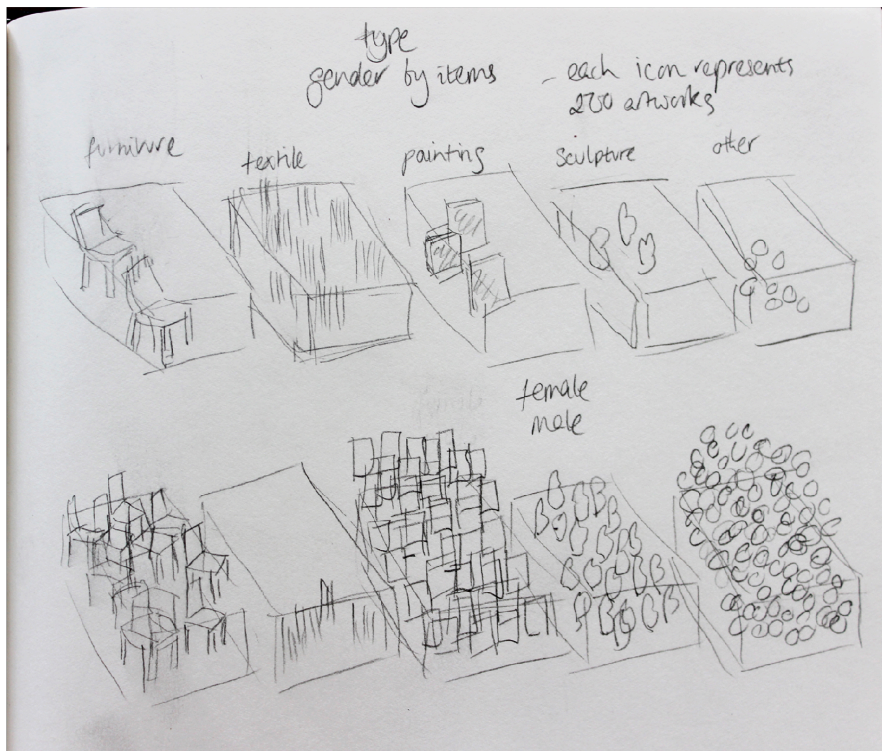 type
gender by items
- each icon represents
200 artworks
furniture
textile
painting
sculpture
other
female
male